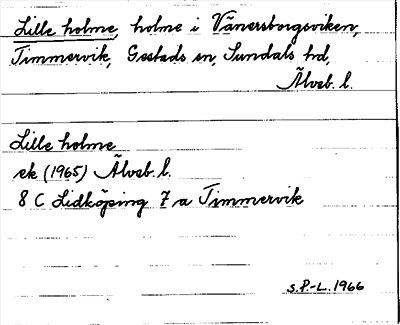 Lille holme, holme i Vänersborgsviken,
Timmervik, Gestads sn, Sundals hd,
Älvsb. l.
Lille holme
ek (1965) Älvsb. l.
8 C Lidköping 7 a Timmervik
S.P.-L. 1966